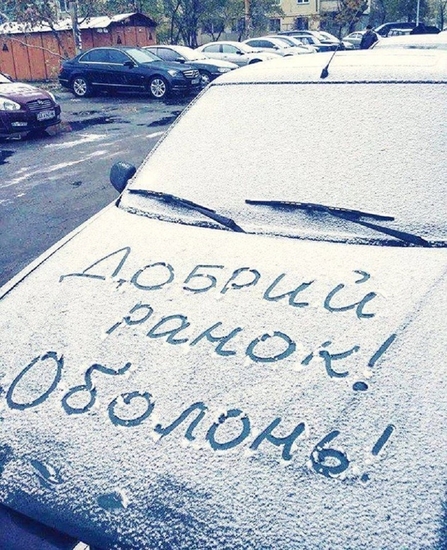 Добрий
ранок!
Оболонь!